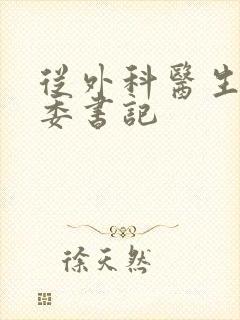 從外科醫生
委書記
徐天然